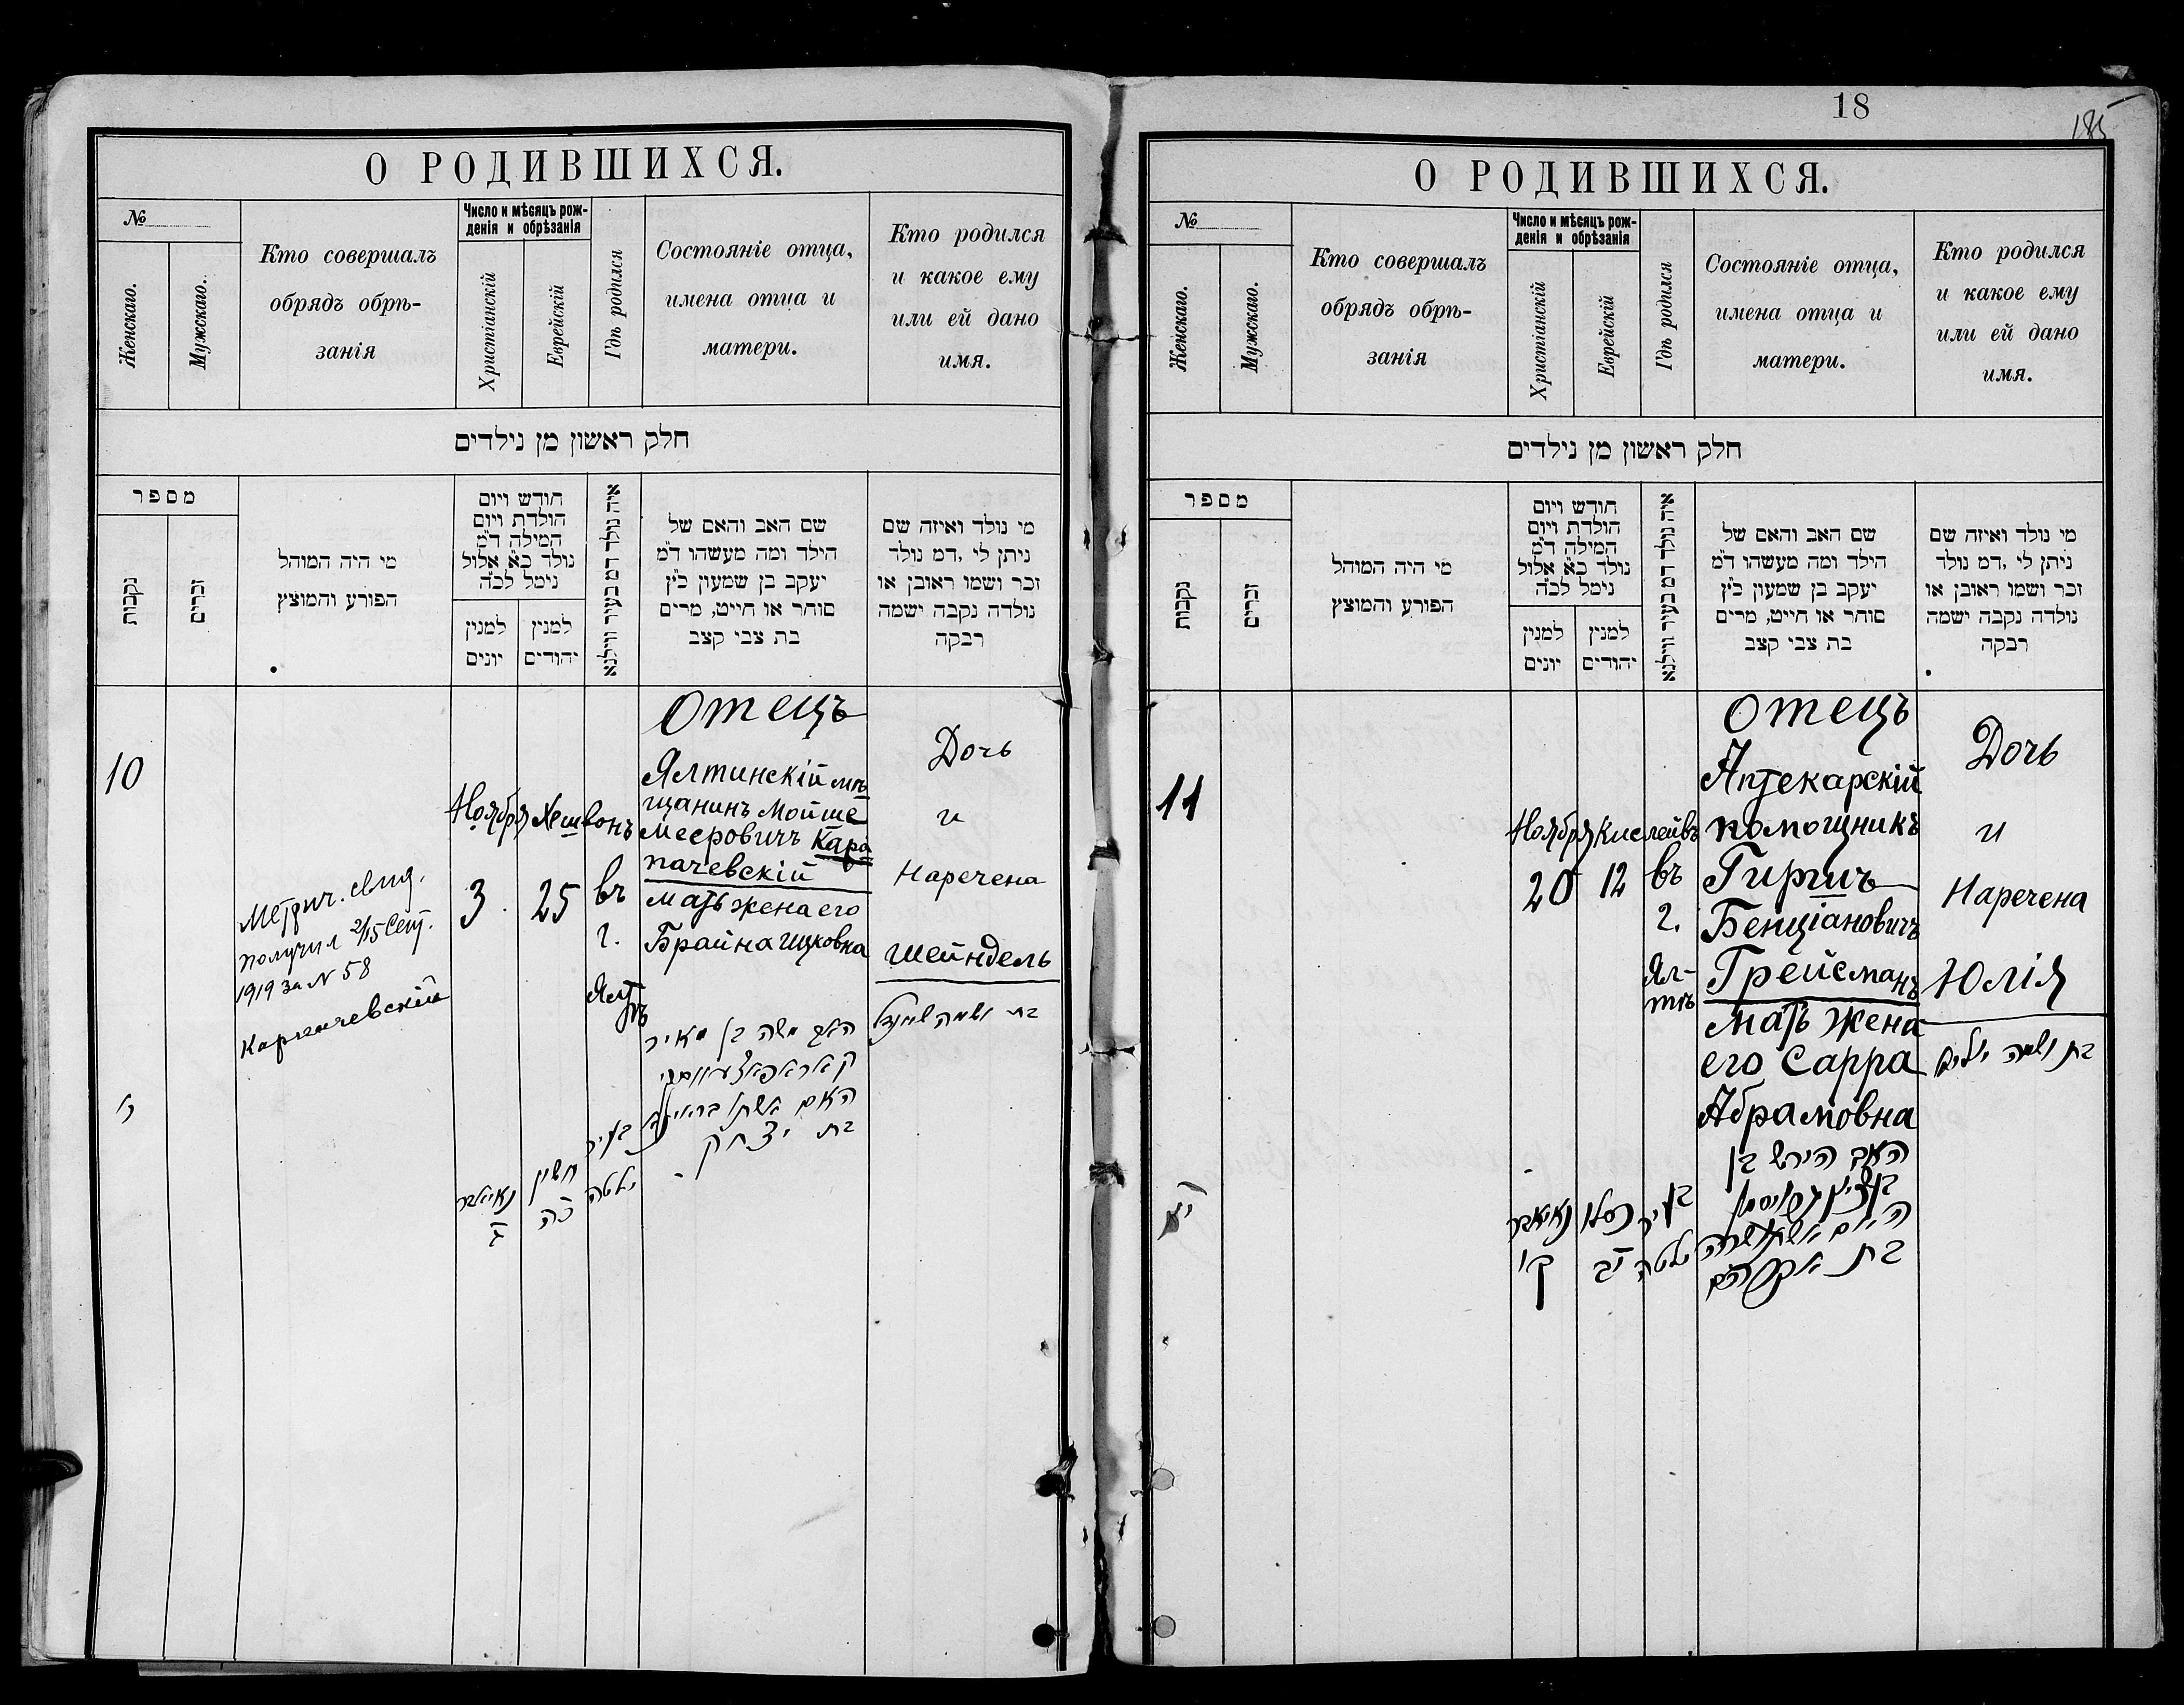 О РОДИВШИХСЯ.
№
Женскаго.
Мужскаго.
Кто совершалъ
обрядъ обрѣ-
занія
Число и мѣсяцъ рож-
денія и обрѣзанія
Христіанскій
Еврейскій
Гдѣ родился
Состояніе отца,
имена отца и
матери.
Кто родился
и какое ему
или ей дано
имя.
חלק ראשון מן נילדים
מספר
נקבות
זכרים
מי היה המוהל
הפורע והמוצץ
חודש ויום
הולדת ויום
המילה ד״מ
נולד כ״א אלול
נימל לכ״ה
למנין
יונים
למנין
יהודים
איה נולד דמ בעיר ווילנא
שם האב והאם של
הילד ומה מעשהו ד״מ
יעקב בן שמעון כ״ץ
סוחר או חייט, מרים
בת צבי קצב
מי נולד ואיזה שם
ניתן לי ,דמ נולד
זכר ושמו ראובן או
נולדה נקבה ישמה
רבקה
10
Метрич. свид.
получил 2/15 Сент.
1919 за N 58
Карпачевскій
Ноября
3
Хешвонъ
25
въ
г.
Ялтѣ
Отецъ
Ялтинскій мѣ
щанинъ Мойше
Меeровичъ Кара
пачевскій
Мать жена его
Брайна Ицковна
Дочь
и
Наречена
Шейндель
י
נאיאבר
ג
חשון
כה
בעיר
יאלטה
האב משה בן מאיר
קאראפאצעווסקי
האם אשתו בריינא
בת יצחק
בת ושמה שיינדל
18
185
О РОДИВШИХСЯ.
№
Женскаго.
Мужскаго.
Кто совершалъ
обрядъ обрѣ-
занія
Число и мѣсяцъ рож-
денія и обрѣзанія
Христіанскій
Еврейскій
Гдѣ родился
Состояніе отца,
имена отца и
матери.
Кто родился
и какое ему
или ей дано
имя.
חלק ראשון מן נילדים
מספר
נקבות
זכרים
מי היה המוהל
הפורע והמוצץ
חודש ויום
הולדת ויום
המילה ד״מ
נולד כ״א אלול
נימל לכ״ה
למנין
יונים
למנין
יהודים
איה נולד דמ בעיר ווילנא
שם האב והאם של
הילד ומה מעשהו ד״מ
יעקב בן שמעון כ״ץ
סוחר או חייט, מרים
בת צבי קצב
מי נולד ואיזה שם
ניתן לי ,דמ נולד
זכר ושמו ראובן או
נולדה נקבה ישמה
רבקה
11
Ноября
20
Кислейвъ
12
въ
г.
Ял-
тѣ
Отецъ
Аптекарскій
помощникъ
Гиршъ
Бенціановичъ
Грейсманъ
Мать жена
его Сарра
Абрамовна
Дочь
и
Наречена
Юлія
יא
נאיאבר
כסלו
יב
בעיר
יאלטה
האב הירש בן
בנציון גרייסמן
האם אשתו שרה
בת אברהם
בת ושמה יוליא